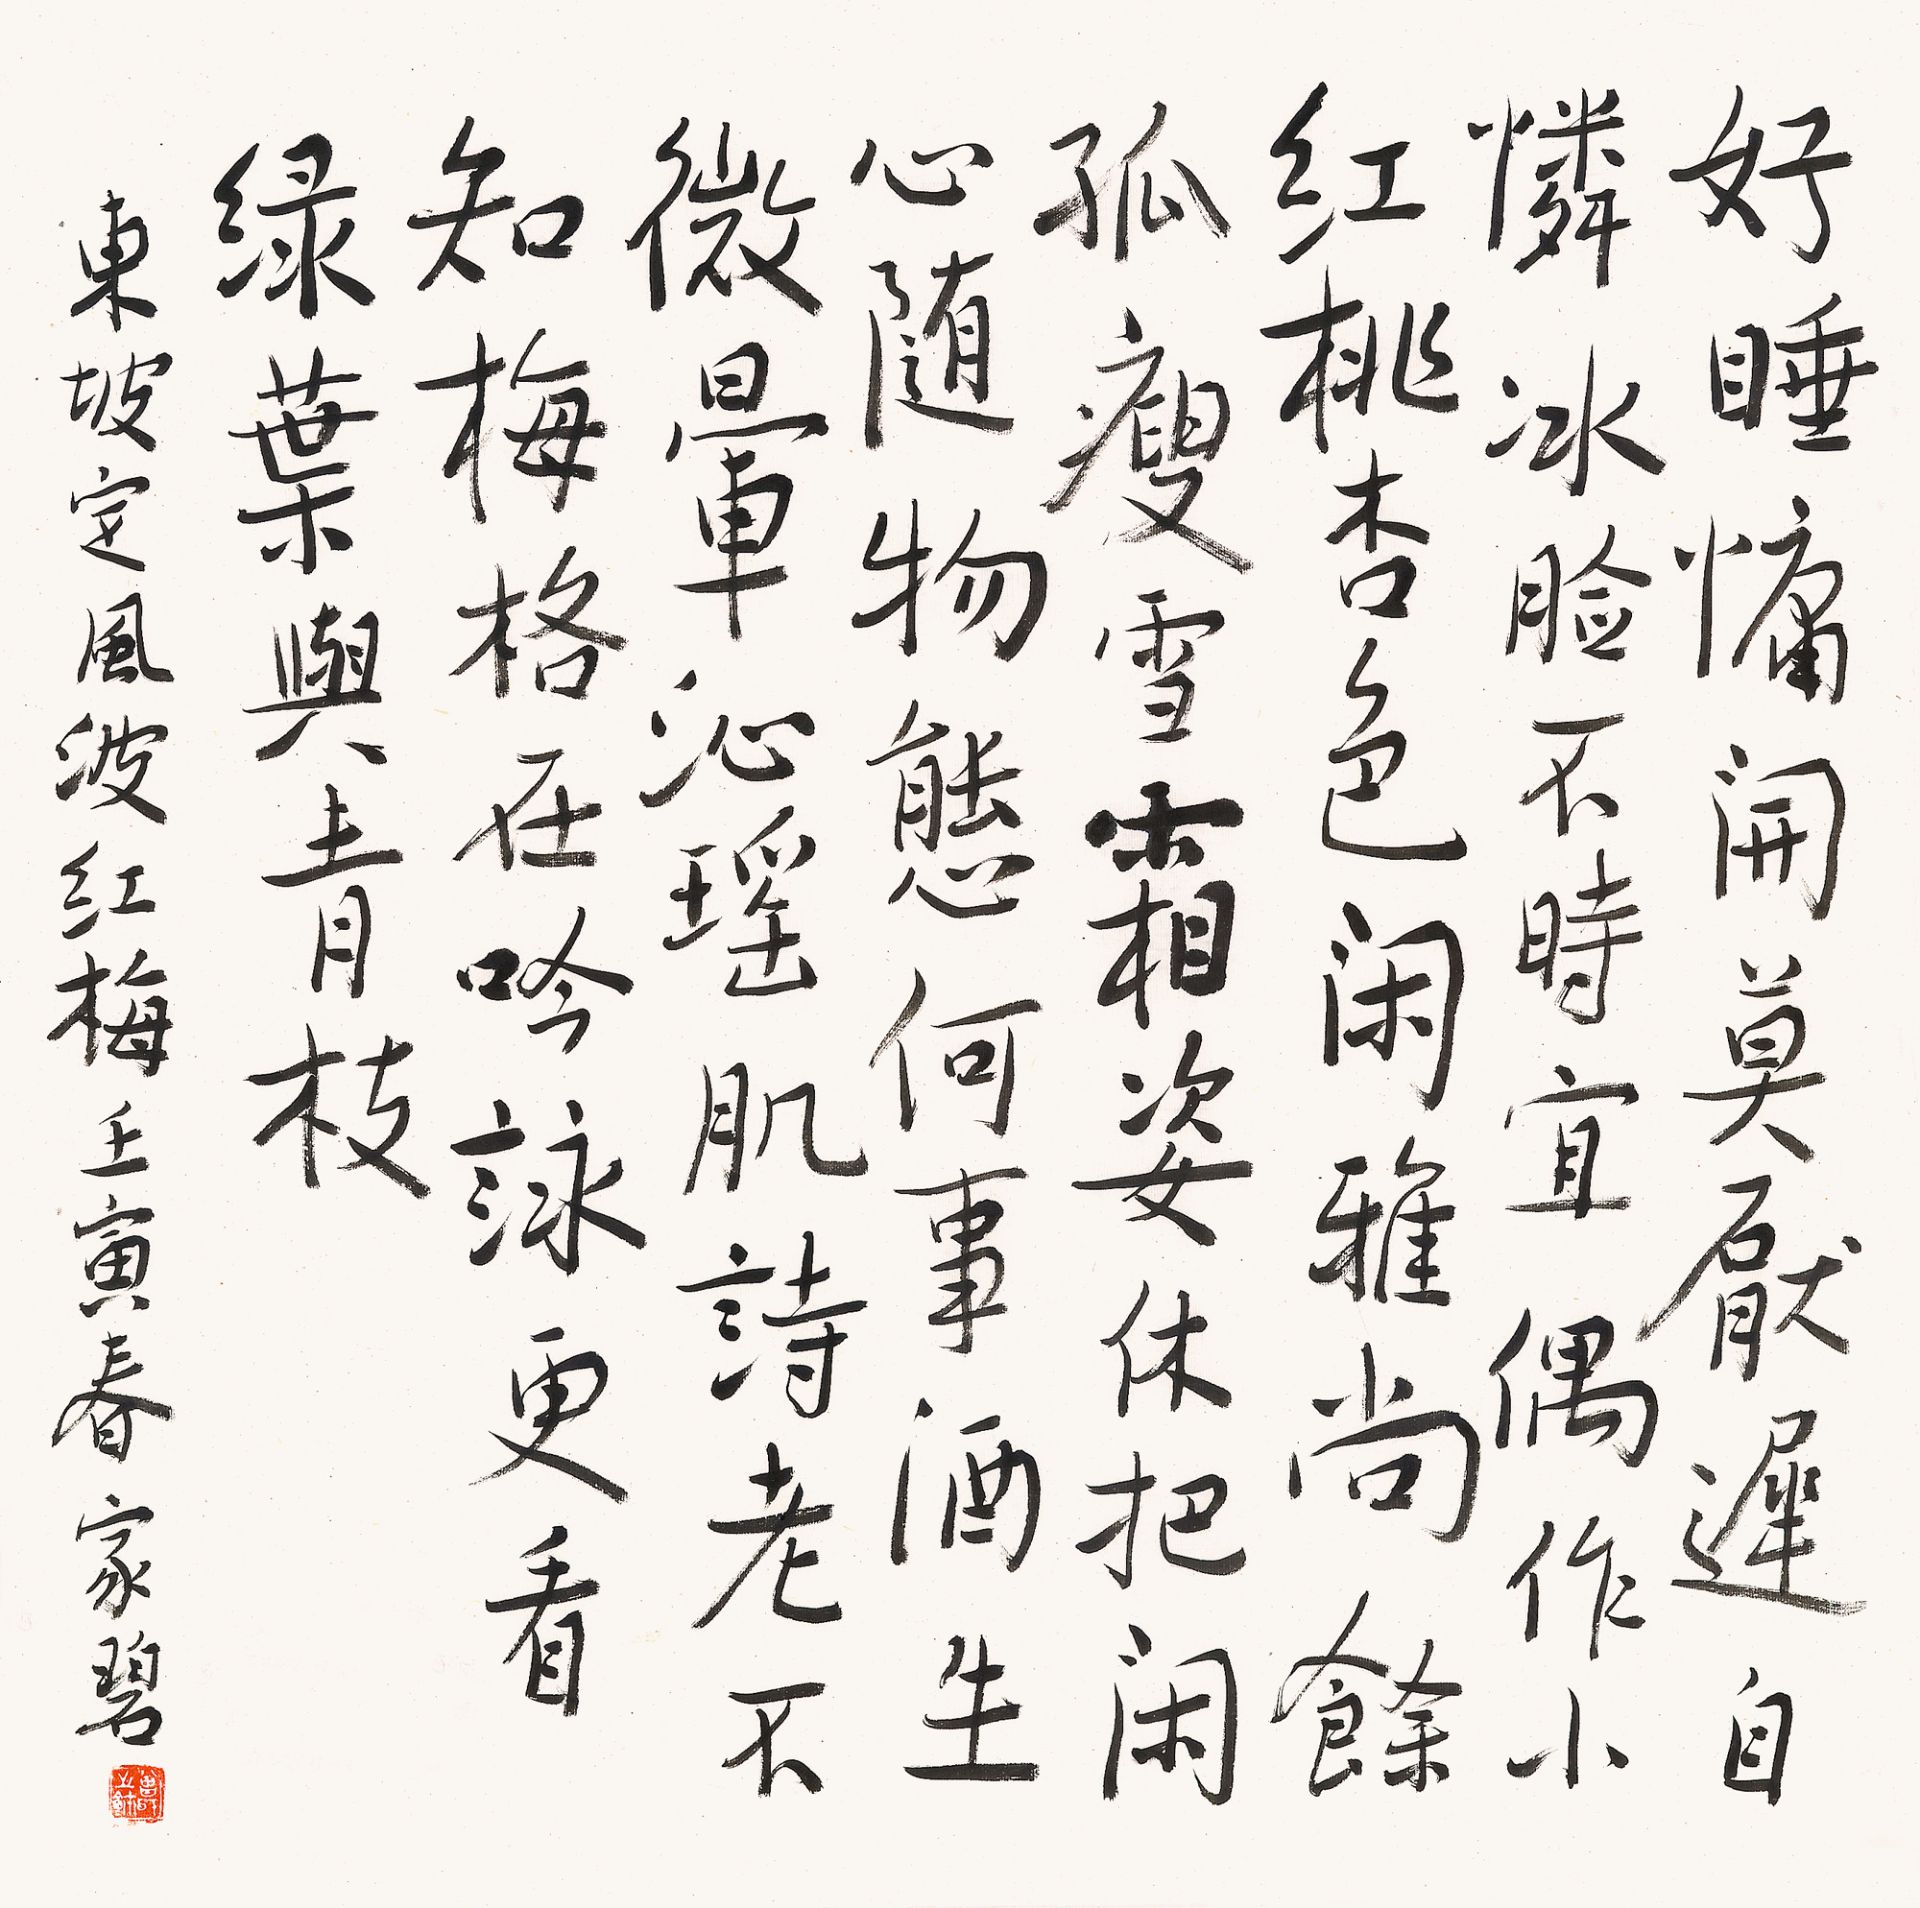 好睡慵開莫厭遲自
憐冰脸不時宜偶作小
红桃杏色闲雅尚餘
孤瘦雪霜姿休把闲
心随物態何事酒生
微暈沁瑶肌詩老不
知梅格在吟詠更看
绿葉與青枝
東坡定風波红梅壬寅春家碧